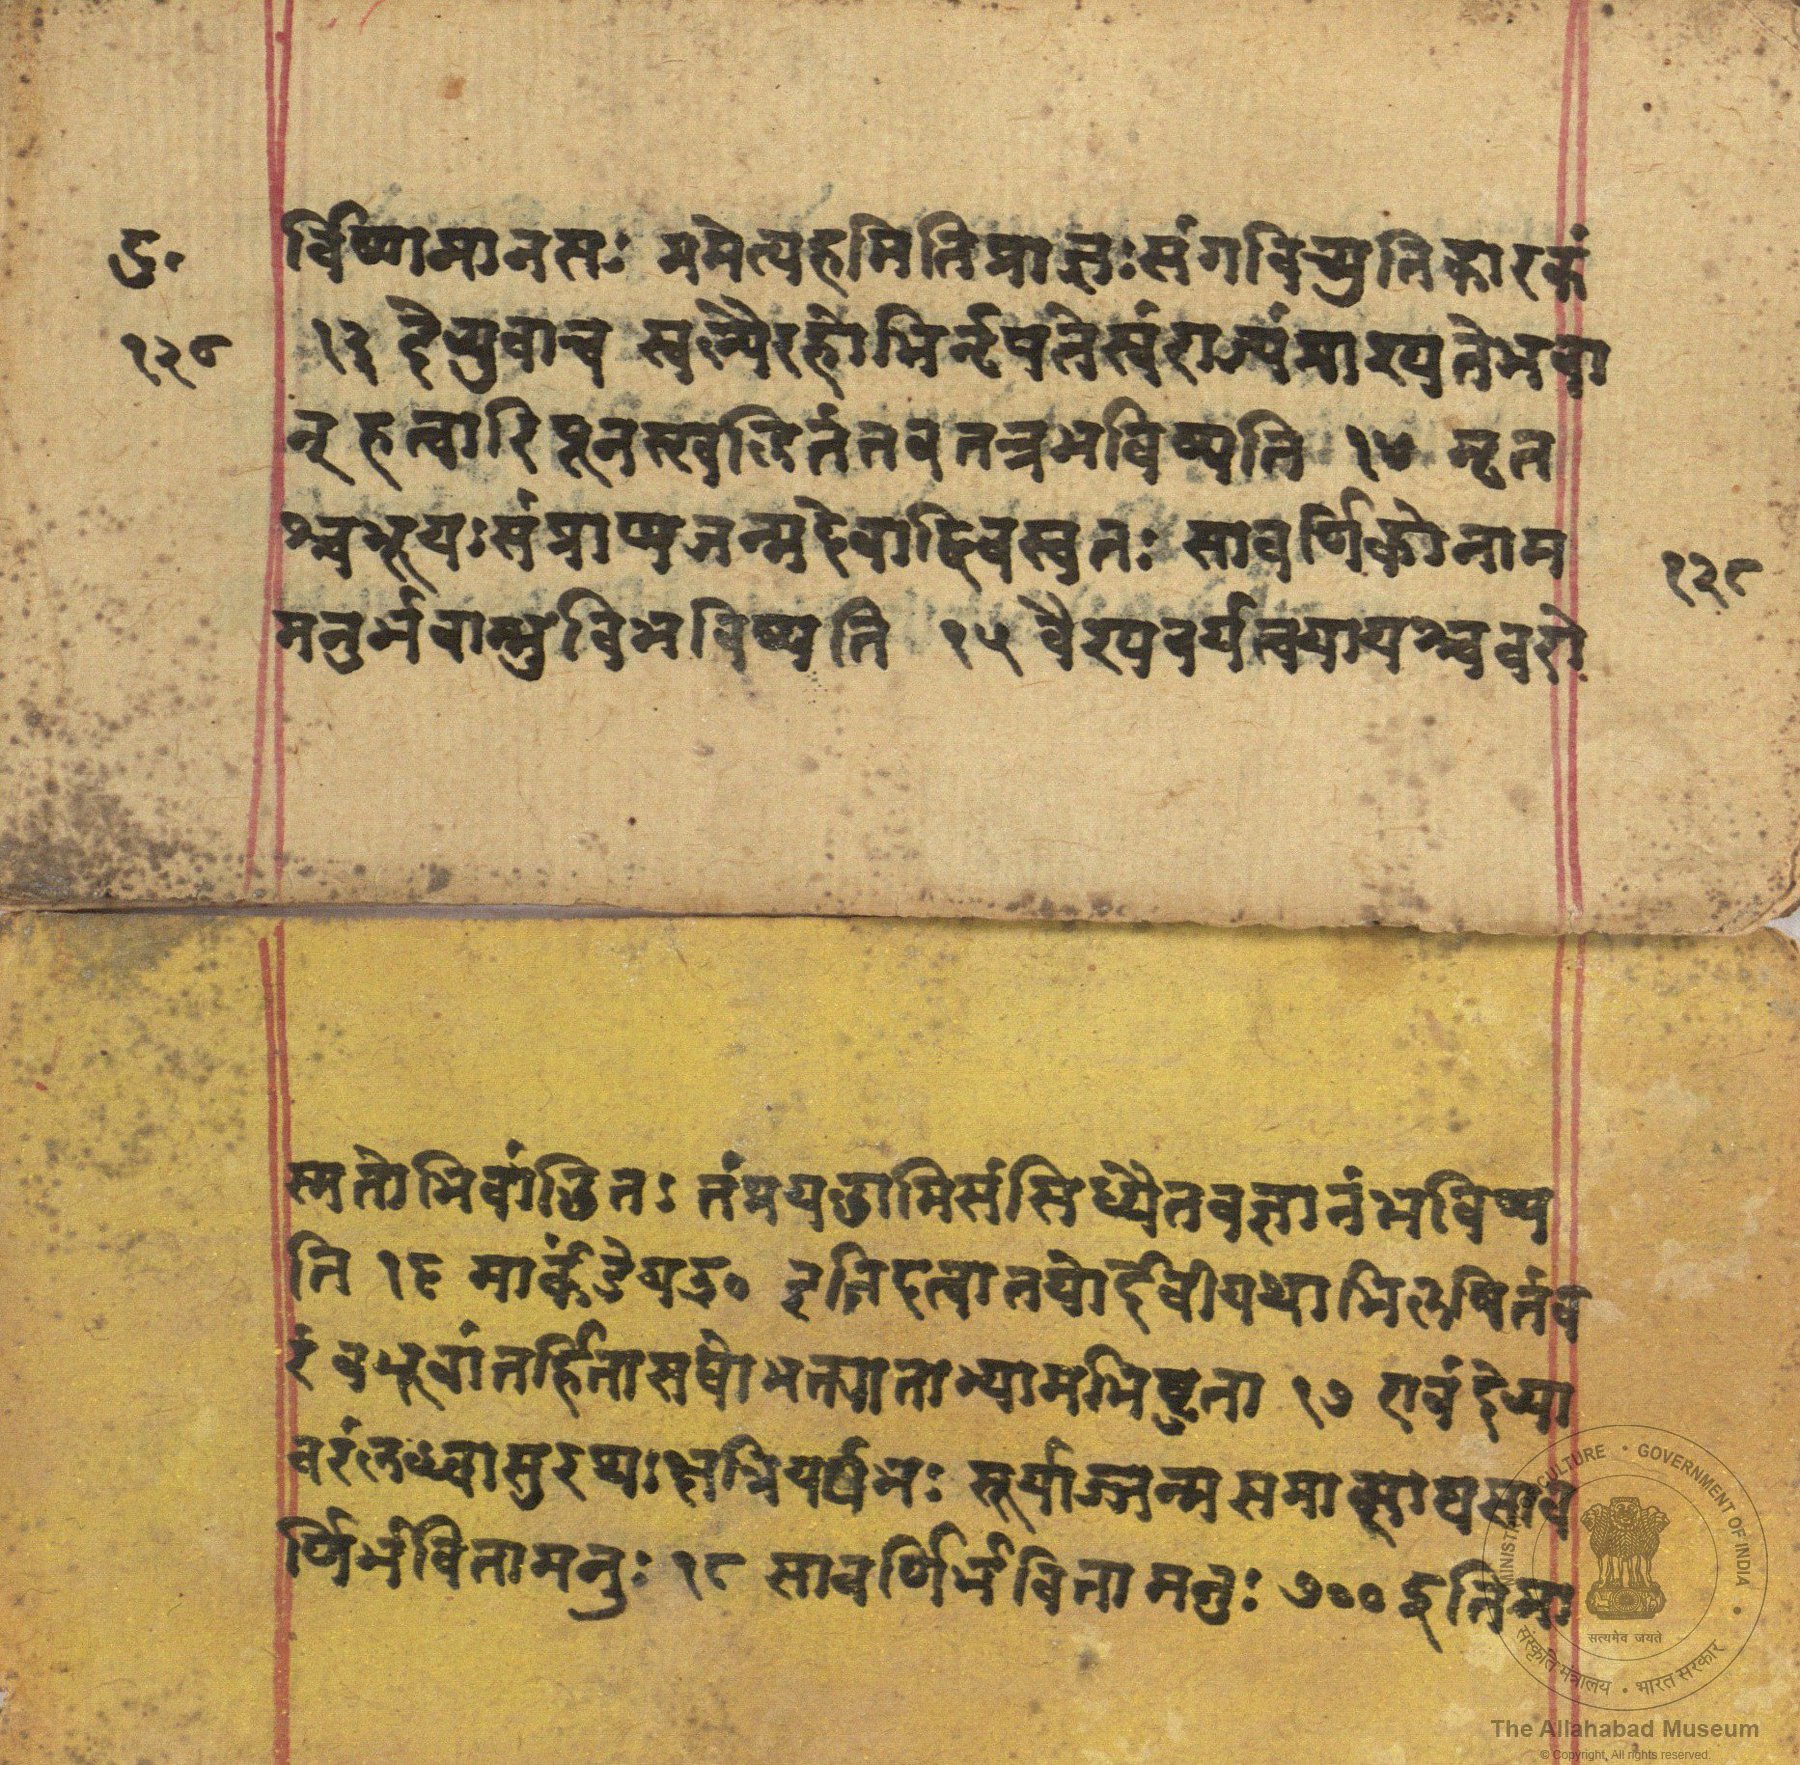 दु॰
१२८
र्विण्णमानसः ममेत्यहमितिप्राज्ञःसंगविच्युतिकारकं
१३ देव्युवाच स्वल्पैरहोभिर्नृपतेस्वंराज्यंप्राप्स्यतेभवा
न् हत्वारिपूनस्खलितंतवतत्रभविष्यति १४ मृत
श्चभूयःसंप्राप्यजन्मदेवाद्विवस्वतः सावर्णिकोनाम
मनुर्भवान्भुविभविष्यति १५ वैश्यवर्यत्वयायश्चवरो
१२८
स्मत्तोभिवांछितः तंप्रयछामिसंसिध्यैतवज्ञानंभविष्य
ति १६ मार्कंडेयउ० इतिदत्वातयोर्द्देवीयथाभिलषितंव
रं बभूवांतर्हितासद्योभक्त्याताभ्यामभिष्टुता १७ एवंदेव्या
वरंलब्ध्वासुरथःक्षत्रियर्षभः सूर्याज्जन्मसमासाद्यसाव
र्णिर्भवितामनुः १८ सावर्णिर्भवितामनुः ७०० इतिमा
MINISTRY OF CULTURE • GOVERNMENT OF INDIA •
सत्यमेव जयते
संस्कृति मंत्रालय • भारत सरकार
The Allahabad Museum
© Copyright, All rights reserved.